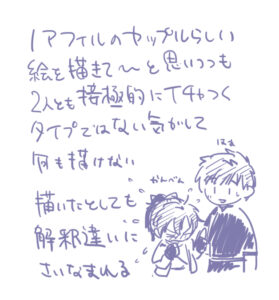 アフィルのカップルらしい
絵を描きて〜と思いつつも
2人とも積極的にイチャつく
タイプではない気がして
何も描けない
描いたとしても
解釈違いに
さいなまれる
かんべん
はぁ